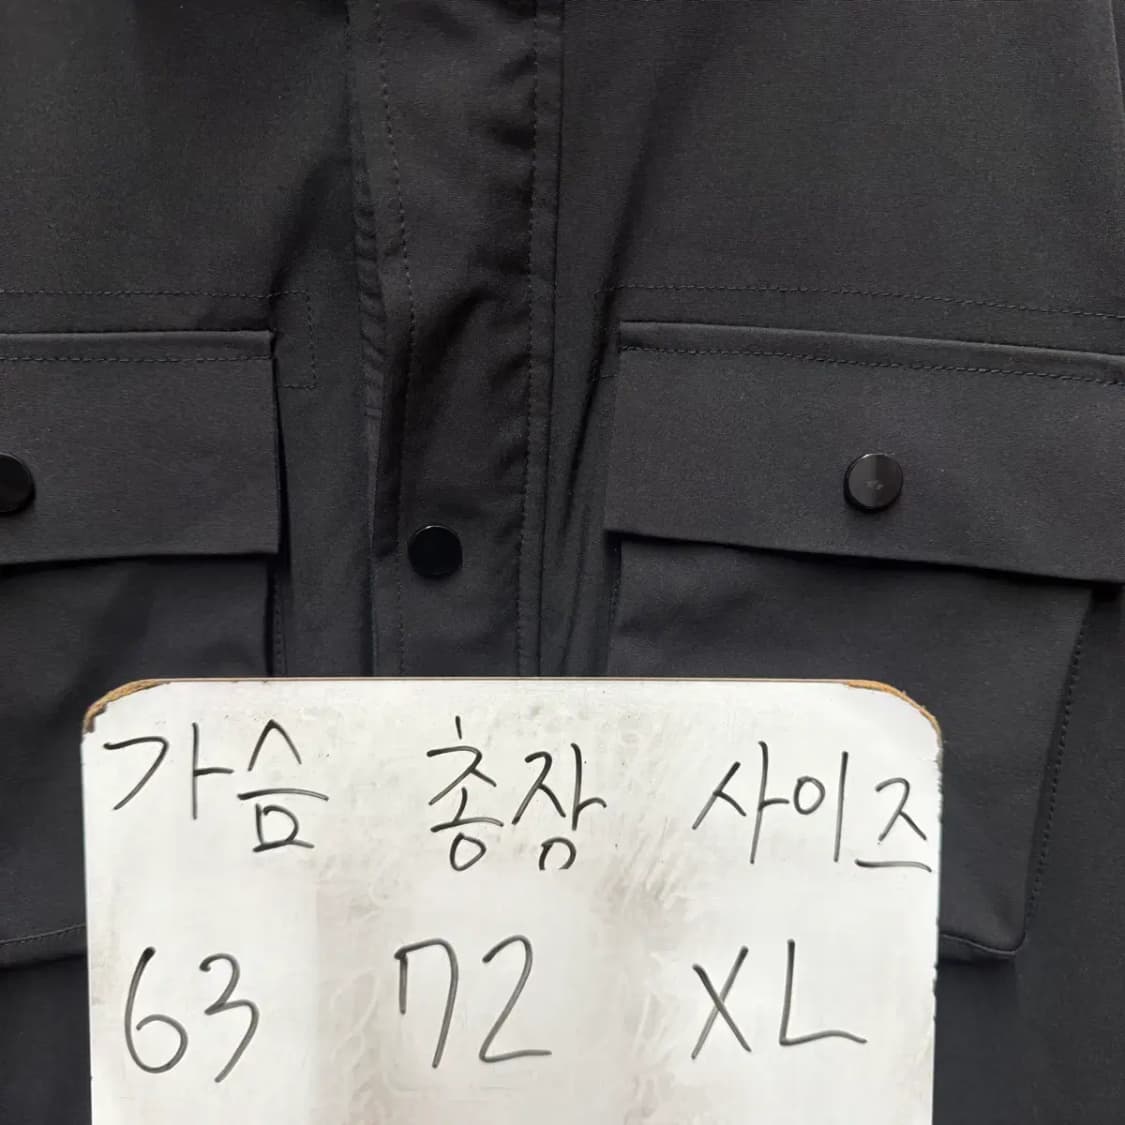 가슴 총장 사이즈
63 72 XL